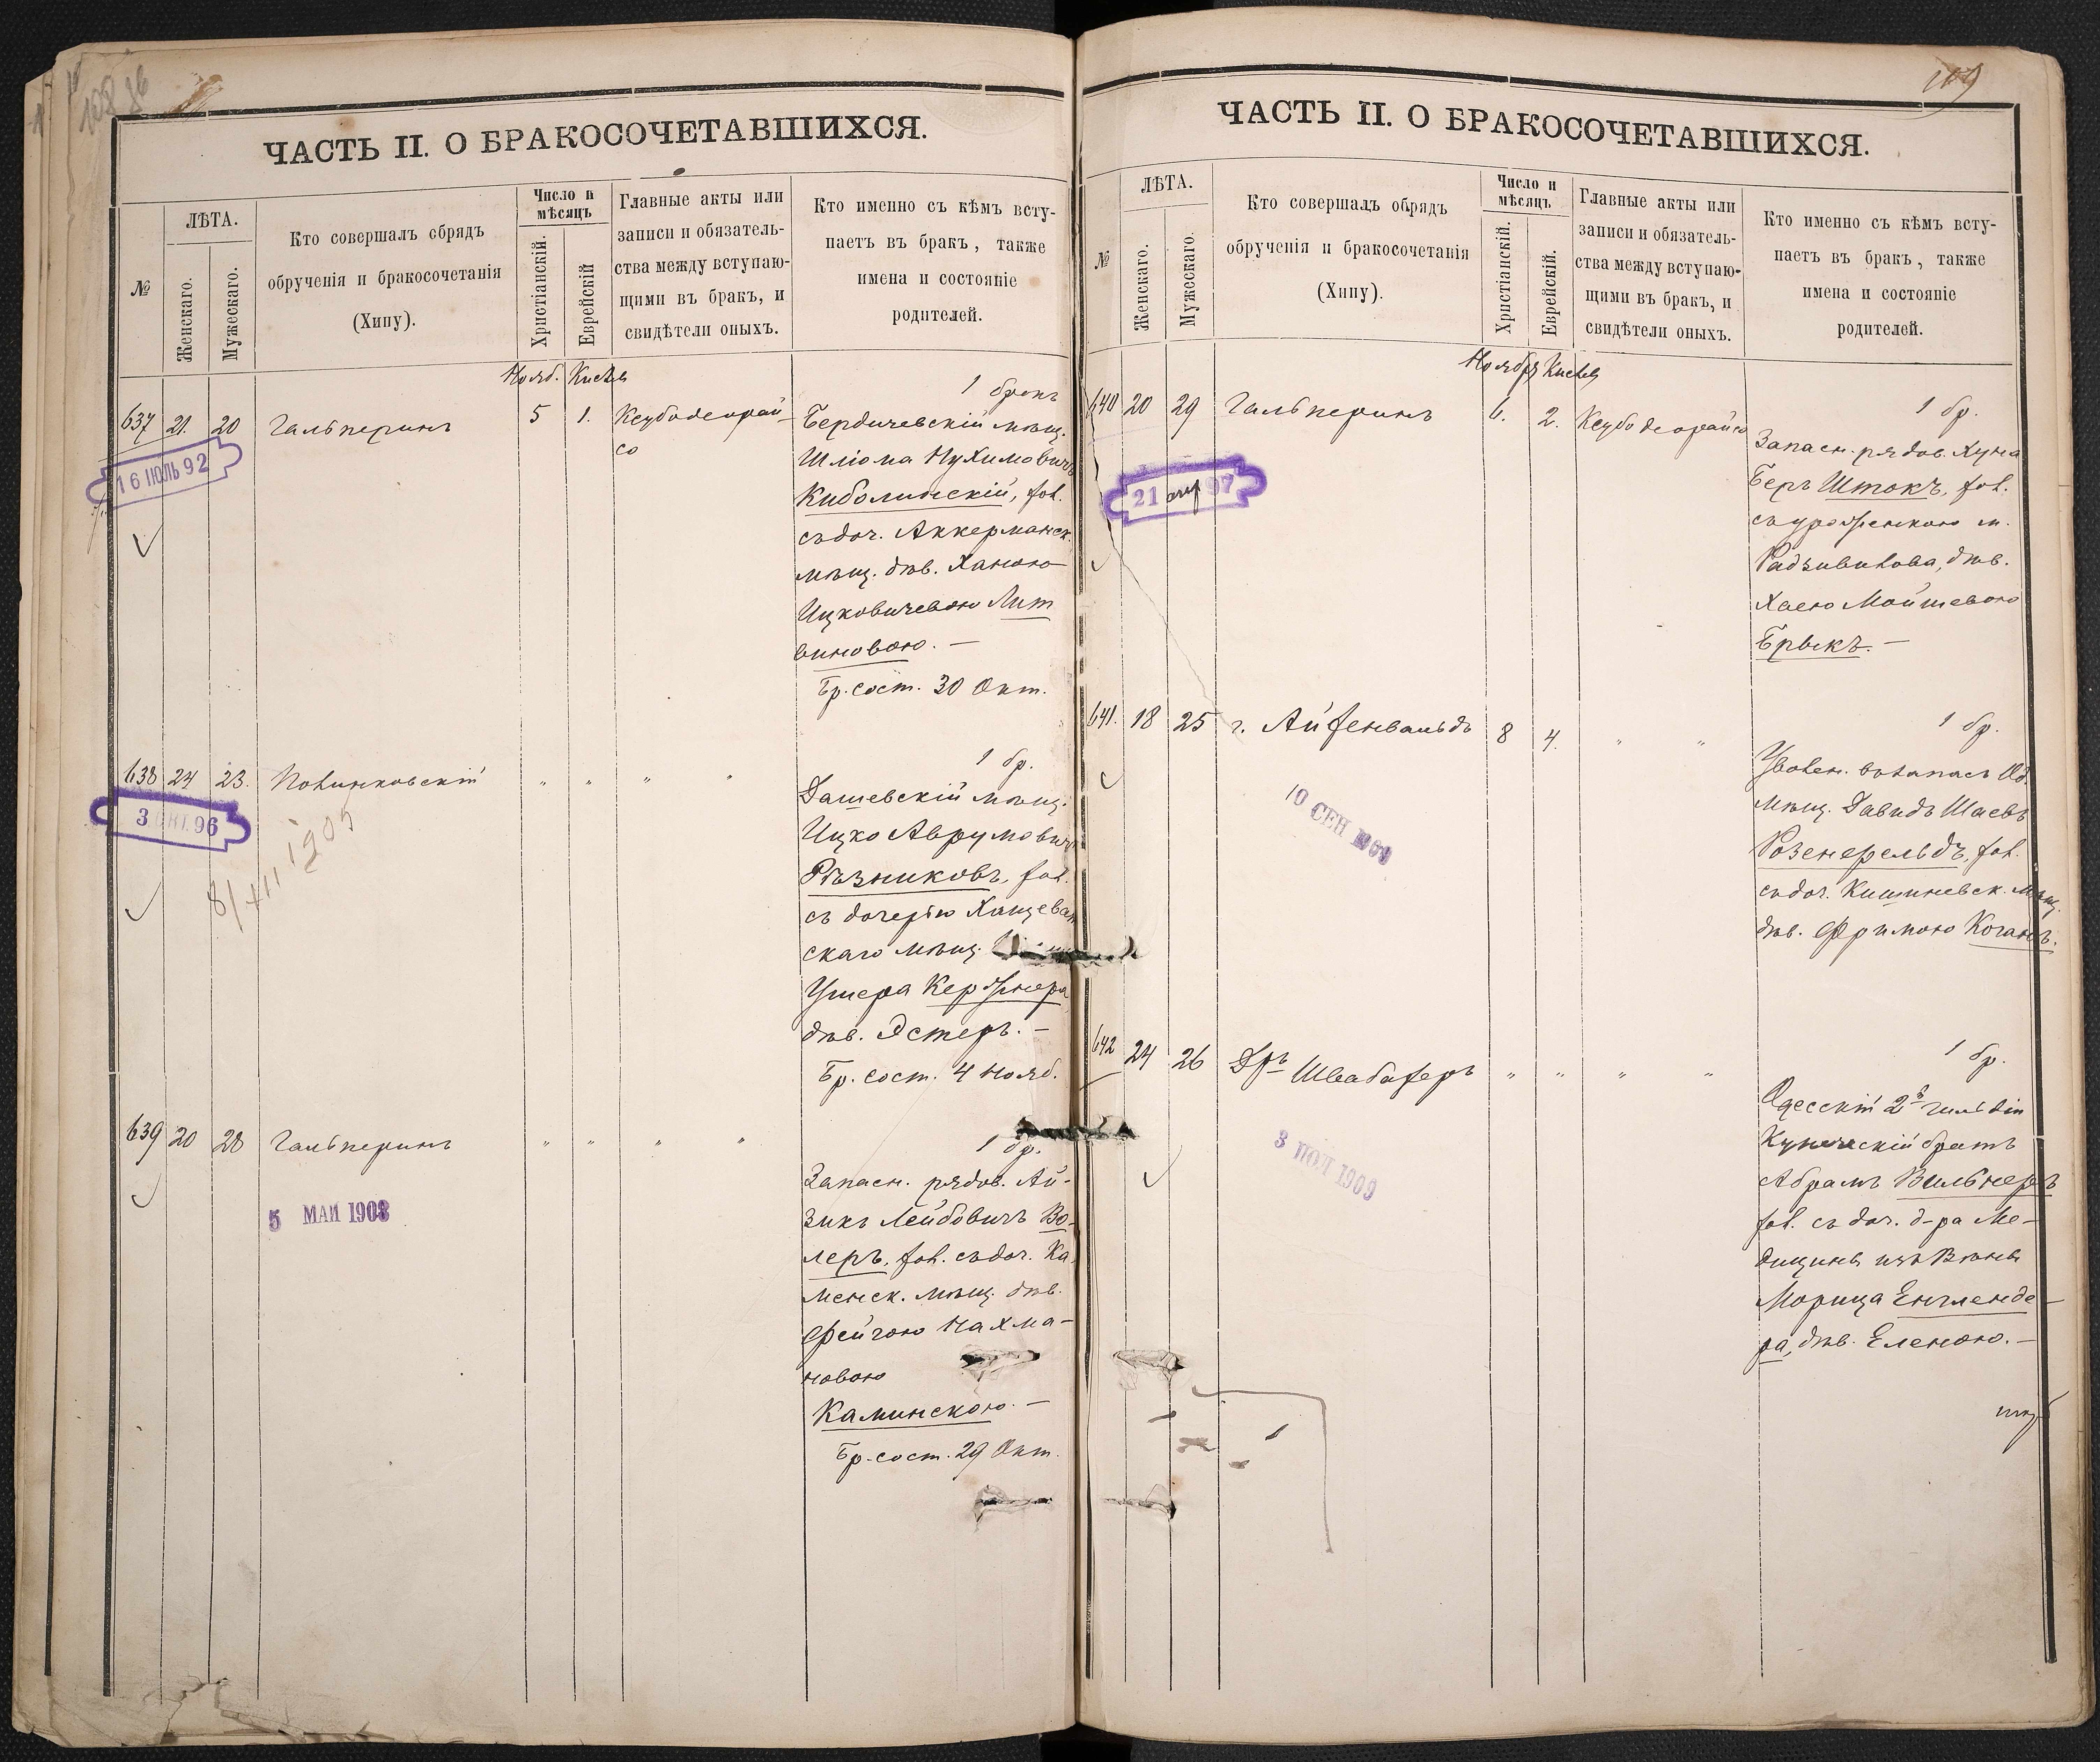 ЧАСТЬ II. О БРАКОСОЧЕТАВШИХСЯ.
№
ЛѢТА.
Женскаго.
Мужескаго.
Кто совершалъ обрядъ
обрученія и бракосочетанія
(Хипу).
Число и
мѣсяцъ
Христіанскій.
Еврейскій
Главные акты или
записи и обязатель-
ства между вступаю-
щими въ бракъ, и
свидѣтели оныхъ.
Кто именно съ кѣмъ всту-
паетъ въ бракъ, также
имена и состояніе
родителей.
Нояб. Кислев
637 21. 20 Гальперинъ 5 1. Ксубо деорай-
со
16 ІЮЛЬ 92
1 бракъ
Бердичевскій мѣщ.
Шліома Нухимовичъ
Киболинскій, хол.
съ доч. Аккерманск.
мѣщ. дѣв. Ханою
Ицковичевою Лит
виновою. —
Бр. сост. 30 Окт.
638 24 23. Полинковскій " " " "
3 ОКТ. 96
8/XII 1905
1 бр.
Дашевскій мѣщ.
Ицко Аврумовичъ
Рѣзниковъ, хол.
съ дочерью Хащеват
скаго мѣщ.
Ушера Кержнера
дѣв. Эстеръ. —
Бр. сост. 4 Нояб.
639 20 28 Гальперинъ " " " "
5 МАЙ 1908
1 бр.
Запасн. рядов. Ай-
зикъ Лейбовичъ Во-
леръ, хол. съ доч. Ка
менск. мѣщ. дѣв.
Фейгою Нахма-
новою
Каминскою. —
Бр. сост. 29 Окт.
109
ЧАСТЬ II. О БРАКОСОЧЕТАВШИХСЯ.
№
ЛѢТА.
Женскаго.
Мужескаго.
Кто совершалъ обрядъ
обрученія и бракосочетанія
(Хипу).
Число и
мѣсяцъ
Христіанскій.
Еврейскій.
Главные акты или
записи и обязатель-
ства между вступаю-
щими въ бракъ, и
свидѣтели оныхъ.
Кто именно съ кѣмъ всту-
паетъ въ бракъ, также
имена и состояніе
родителей.
Ноября Кислев
640 20 29 Гальперинъ 6. 2. Ксубо деорайсо
21 97
1 бр.
Запасн. рядов. Хуна
Беръ Штокъ, хол.
съ урожденкою м.
Радзивилова, дѣв.
Хаею Мойшевою
Брыкъ. —
641. 18 25 г. Айхенвальдъ 8 4. " "
10 СЕН 1909
1 бр.
Уволен. въ запасъ Од.
мѣщ. Давидъ Шаевъ
Розенфельдъ, хол.
съ доч. Кишиневск. мѣщ.
дѣв. Фримою Коганъ.
642 24 26 Дръ Швабахеръ " " " "
3 1909
1 бр.
Одесскій 2й гильдіи
Купеческій братъ
Абрамъ Вильнеръ
хол. съ доч. д-ра Ме-
дицины изъ Вѣны
Морица Енглендe-
ра, дѣв. Еленою. —